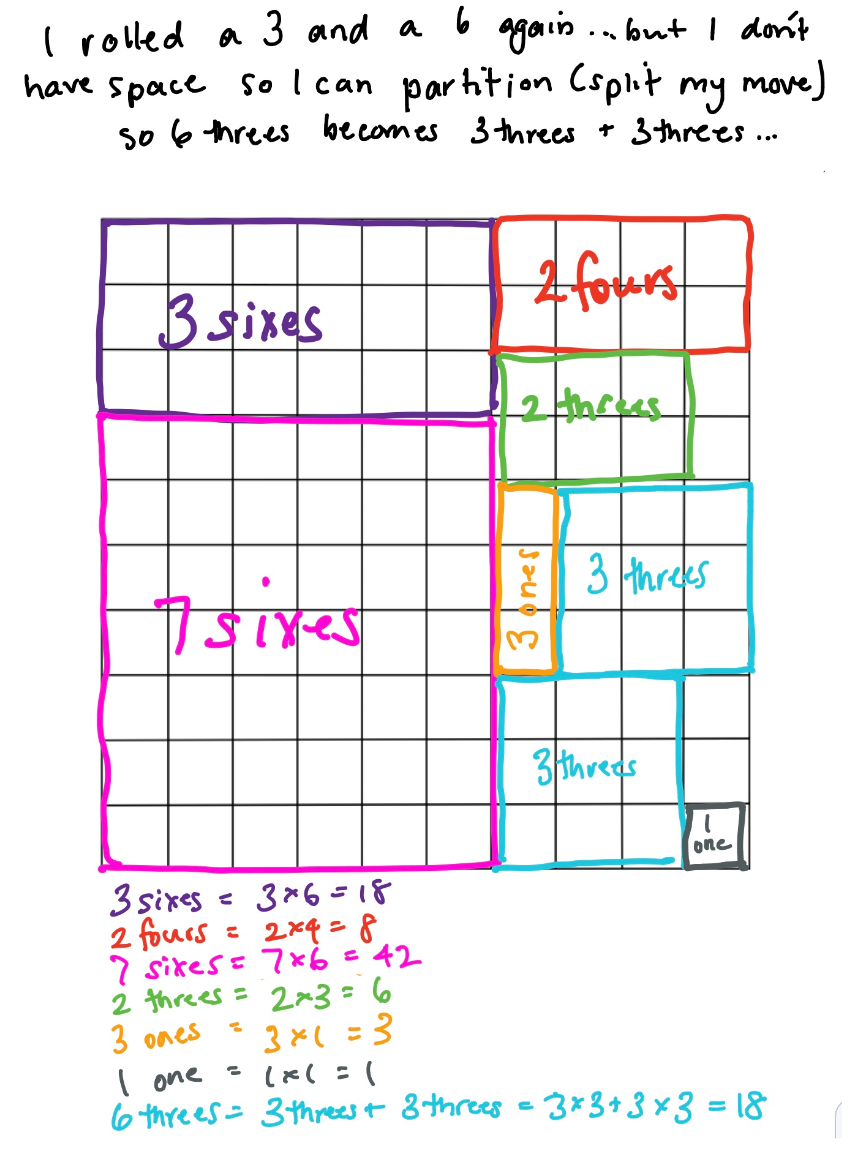 I rolled a 3 and a 6 again...but I don't
have space so I can partition (split my move)
so 6 threes becomes 3 threes + 3 threes...
3 sixes
2 fours
2 threes
3 ones
3 threes
7 sixes
3 threes
1
one
3 sixes = 3×6 = 18
2 fours = 2×4 = 8
7 sixes = 7×6 = 42
2 threes = 2×3 = 6
3 ones = 3×1 = 3
1 one = 1×1 = 1
6 threes = 3 threes + 3 threes = 3×3+3×3 = 18